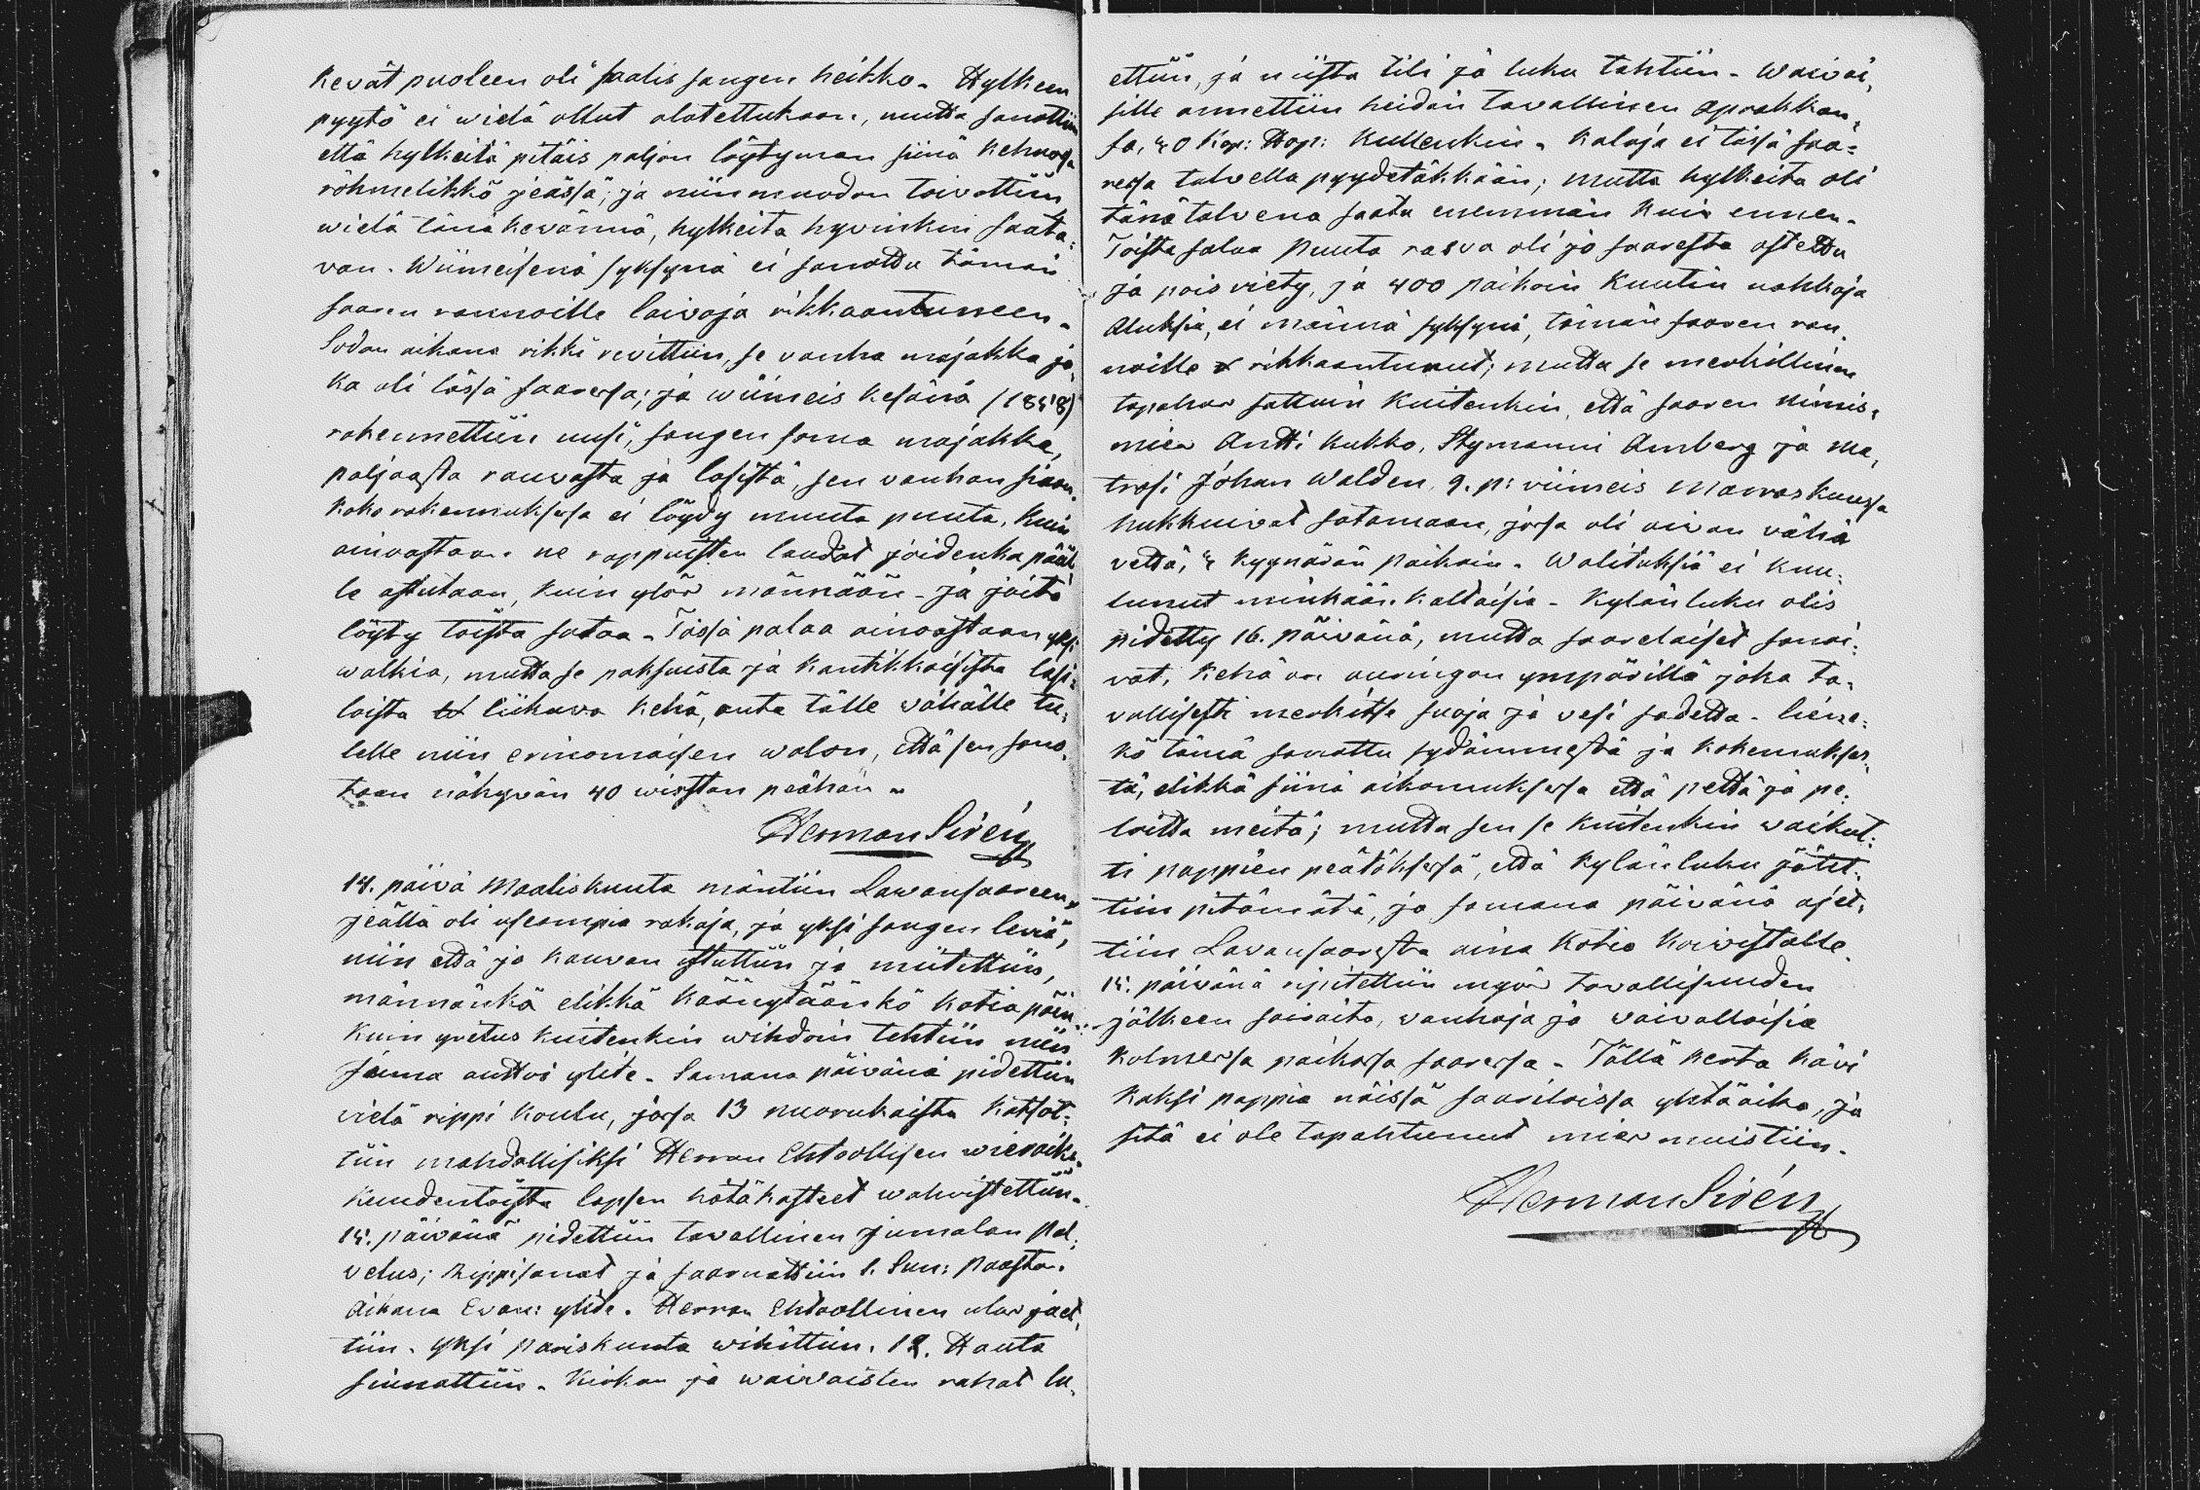 Kevät puoleen oli saalis sangen heikko. Hylkeen
pyytö ei wielä ollut alotettukaan, mutta sanottiin
että hylkeitä pitäis paljon löytymän siinä
röhmelikkö jeässä; ja niin muodon toivottiin
wielä tänä kevännä, hylkeitä hyvinkin saata-
van. Wiimeisenä syksynä ei sanottu tämän
saaren rannoille laivoja rikkaantuneen.
Sodan aikana rikki revittiin, se vanha majakka jo-
ka oli tässä saaressa; ja wiimeis kesänä (1858)
rakennettiin uusi, sangen soma majakka,
paljaasta rauvasta ja lasista, sen vanhan siaan.
Koko rakennuksessa ei löydy muuta puuta, kuin
ainoastaan ne rappuisten laudat joidenka pääl
le astutaan, kuin ylös männään - ja joita
löyty toista sataa. Tässä palaa ainoastaan yksi
walkia, mutta se paksuista ja kantikkaisista lasi-
loista liikuva kehä, anta tälle vähälle tu-
lelle niin erinomaisen walon, että sen sano-
taan näkyvän 40 wirstan peähän.
Herman Sirén
14. päivä Maaliskuuta mäntiin Lavansaareen,
jeällä oli useampia rakoja, ja yksi sangen leviä,
niin että jo kauvan istuttiin ja miitettiin,
männänkö elikkä käänytäänkö kotia päin
Kuin yritus kuitenkin wihdoin tehtiin niin
Jumala auttoi ylite. Samana päivänä pidettiin
vielä rippi koulu, jossa 13 nuorukaista katsot-
tiin mahdollisiksi Herran Ehtoollisen
Kuudentoista lapsen hätäkasteet wahvistettiin.
15. päivänä pidettiin tavallinen Jumalan pal-
velus; Rippisanat ja saarnattiin 1. Sun: Paasto-
aikana Evan: ylite. Herran Ehtoollinen ulos jaet-
tiin. Yksi pariskunta wihittiin. 12. Hauta
siunattiin. Kirkon ja waivaisten rahat lu-
ettiin, ja niista tili ja luku tehtiin. Waivai-
sille annettiin heidän tavallinen aprakkan-
sa, 40 Kop: Hop: Kullenkin. Kaloja ei tässä saa-
ressa talvella pyydetäkkään; mutta hylkeita oli
tänä talvena saatu enemmän kuin ennen.
Toista sataa Puuta rasva oli jo saaresta ostettu
ja pois viety, ja 400 paikoin Kuutin nahkoja
Aluksia, ei männä syksynä, tämän saaren ran-
noille rikkaantunut; mutta se merkillinen
tapahus sattuin kuitenkin, että saaren nimis-
mies Antti Kukko, Stymanni Amberg ja Ma-
trosi Johan Walden, 9. p: viimeis Marraskuussa
hukkuivat satamaan, jossa oli aivan vähä
vettä, 4 kyynärän paikoin. Walituksia ei kuu-
lunut minkään kaltaisia. Kylän luku olis
pidetty 16. päivänä, mutta saarelaiset sanoi-
vat, kehä on auringon ympärillä joka ta-
vallisesti merkitse suoja ja vesi sadetta. liene-
kö tämä sanottu sydämmestä ja kokemukses-
ta, elikkä siinä aikomuksessa että pettä ja pe-
loitta meitä; mutta sen se kuitenkin waikut-
ti pappien peätöksessä, että kylän luku jätet-
tiin pitämätä, ja samana päivänä ajet-
tiin Lavansaaresta aina kotio Koivistolle.
15. päivänä ripitettiin myös tavallisuuden
jälkeen sairaita, vanhoja ja vaivalloisia
kolmessa paikassa saaressa. Tällä kerta kävi
kaksi pappia näissä saariloissa yhtä aika, ja
sitä ei ole tapahtunut mies muistiin.
Herman Sirén